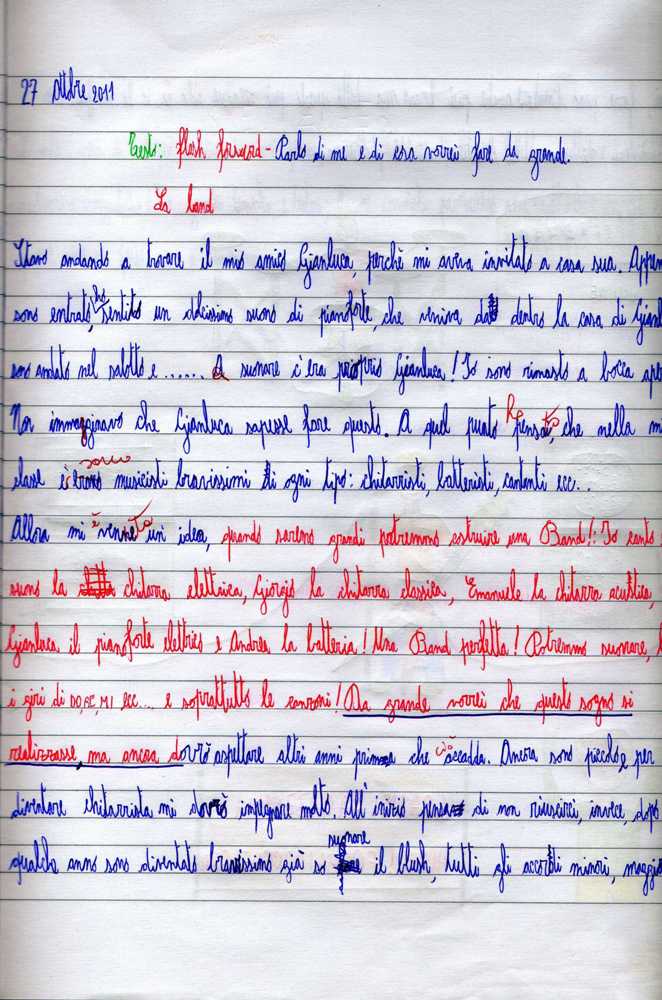 27 Ottobre 2011
Testo: flash forward - Parlo di me e di cosa vorrei fare da grande.
La band
Stavo andando a trovare il mio amico Gianluca, perchè mi aveva invitato a casa sua. Appen
sono entrato, ho sentito un dolcissimo suono di pianoforte, che veniva da dentro la casa di Gianl
sono andato nel salotto e ...... A suonare c'era proprio Gianluca! Io sono rimasto a bocca ape
Non immaginavo che Gianluca sapesse fare questo. A quel punto ho pensato, che nella m
classe ci sono musicisti bravissimi di ogni tipo: chitarristi, batteristi, cantanti ecc..
Allora mi è venneta un'idea, quando saremo grandi potremmo costruire una Band!: Io canto
suono la chitarra elettrica, Giorgio la chitarra classica, Emanuele la chitarra acustica,
Gianluca il pianoforte elettrico e Andrea la batteria! Una Band perfetta! Potremmo suonare,
i giri di DO, RE, MI ecc... e soprattutto le canzoni! Da grande vorrei che questo sogno si
realizzasse, ma ancora dovrò aspettare altri anni prima che ciò accada. Ancora sono piccolo e per
diventare chitarrista mi dovrò impegnare molto. All'inizio pensa di non riuscirci, invece, dopo
qualche anno sono diventato bravissimo già so suonare il blush, tutti gli accordi minori, maggio